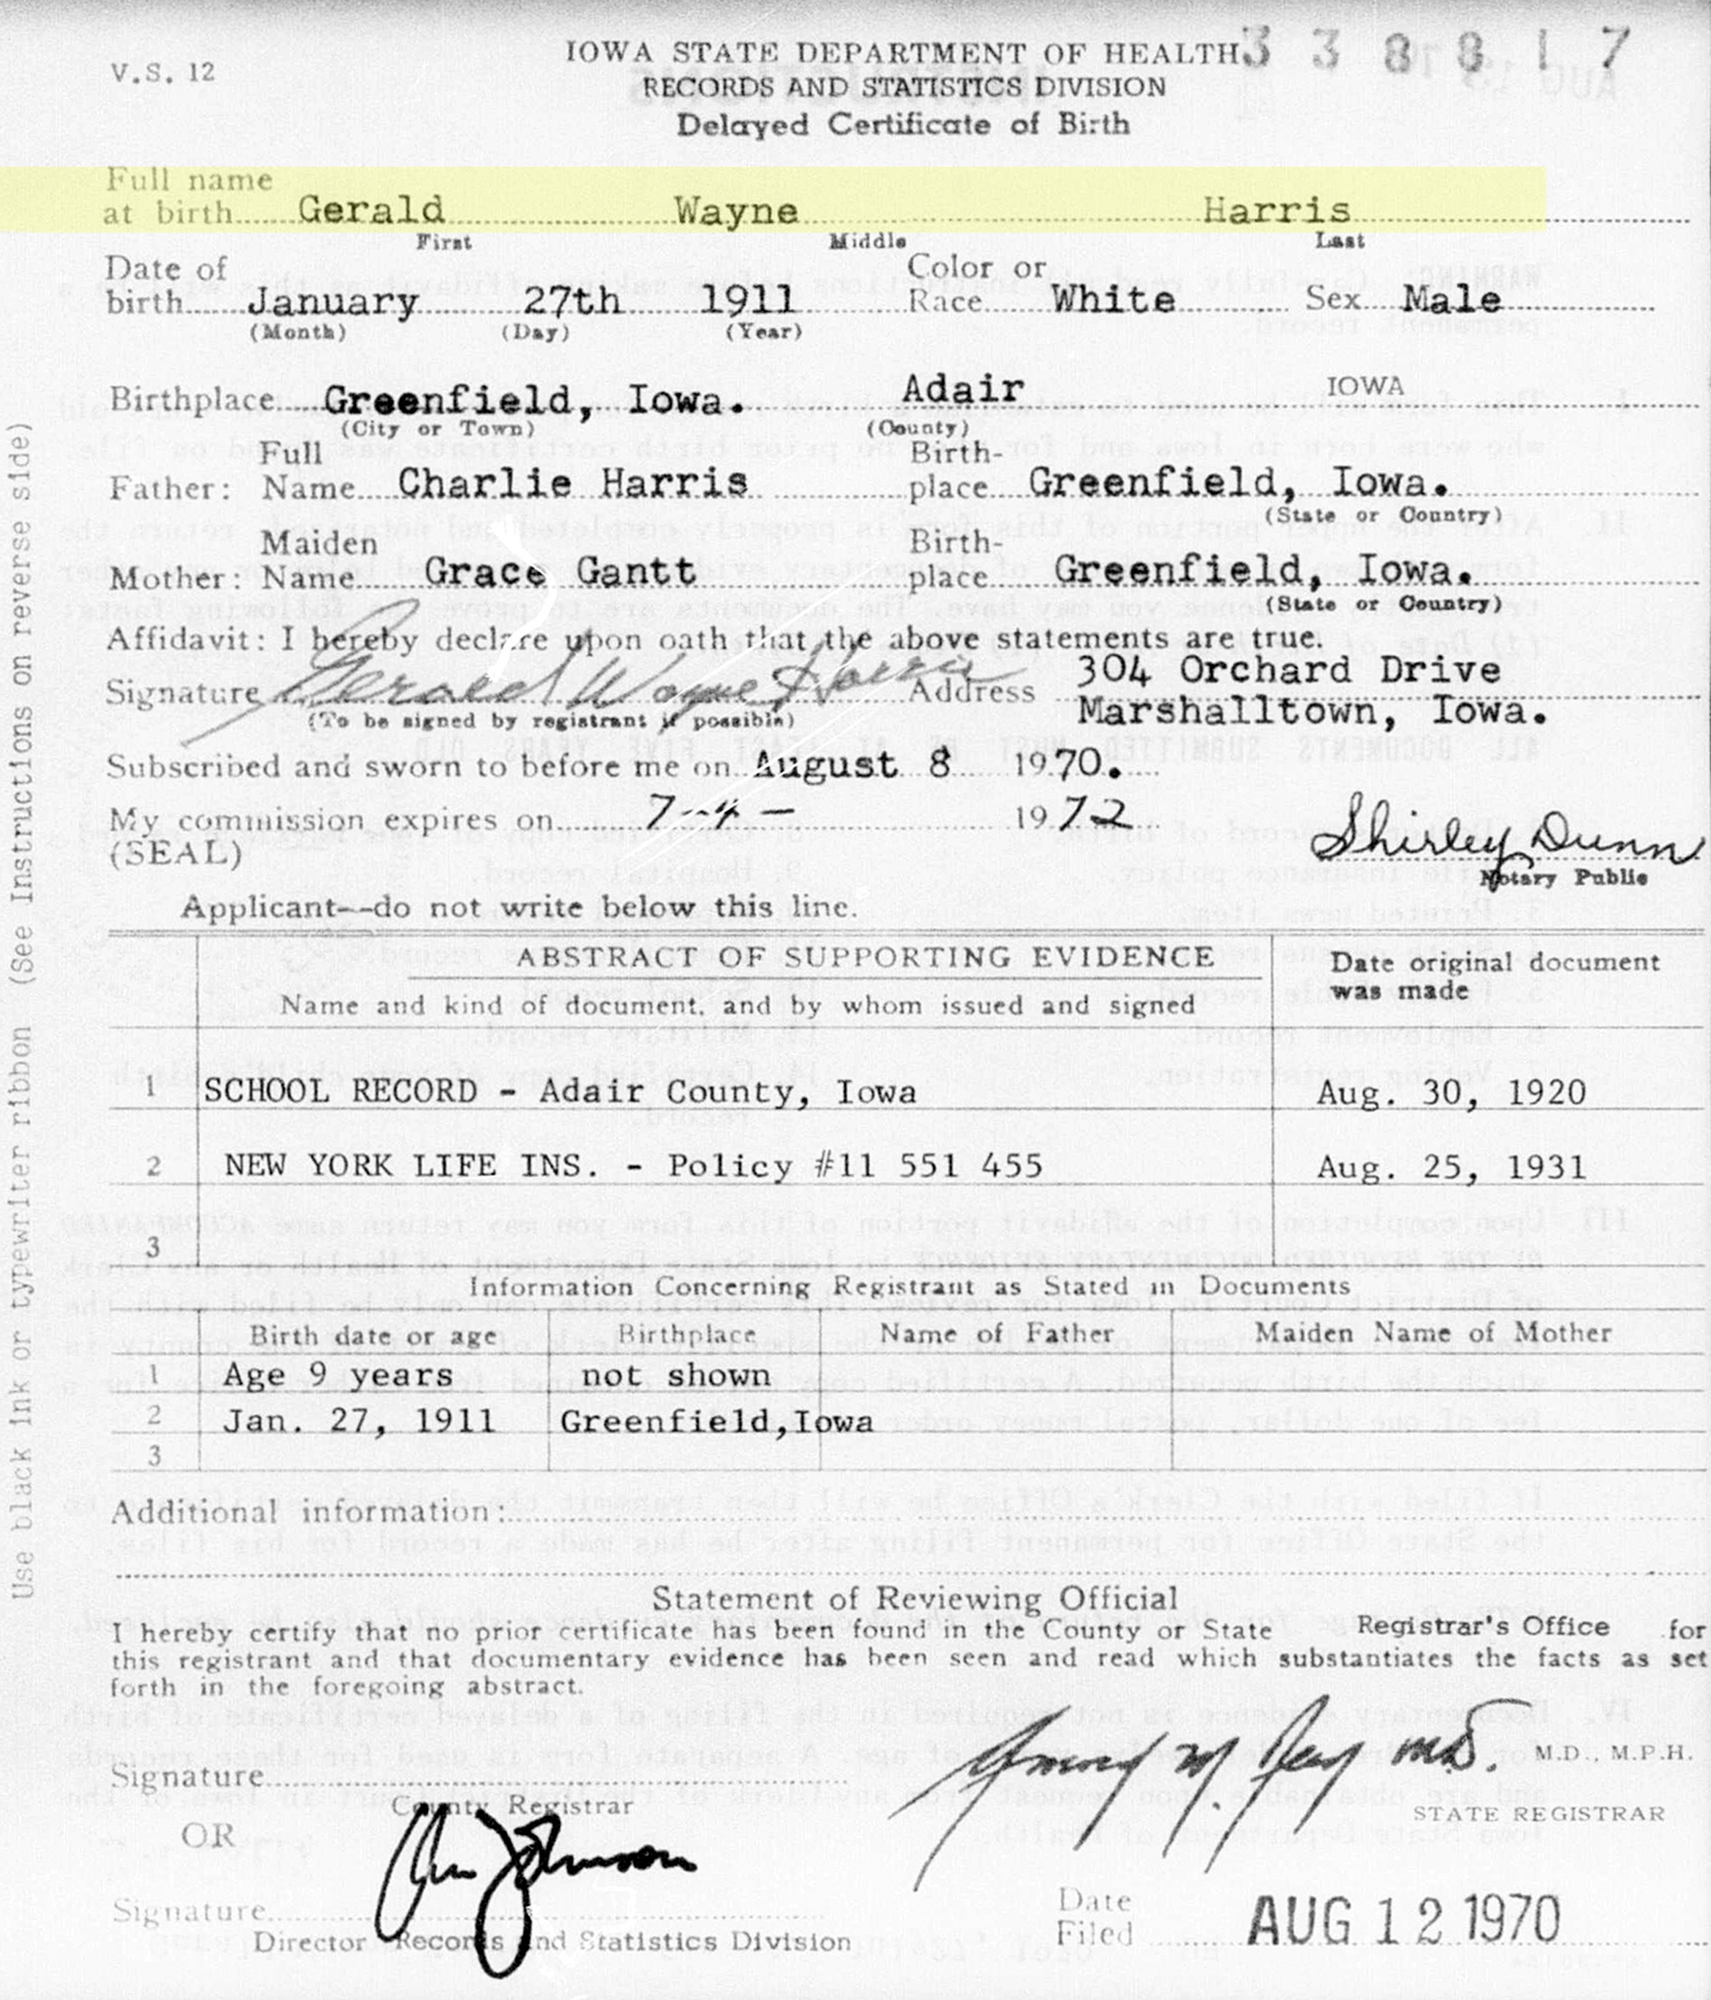 V.S. 12
IOWA STATE DEPARTMENT OF HEALTH 338817
RECORDS AND STATISTICS DIVISION
Delayed Certificate of Birth
Full name
at birth Gerald Wayne Harris
First Middle Last
Date of Color or
birth January 27th 1911 Race White Sex Male
(Month) (Day) (Year)
Birthplace Greenfield, Iowa. Adair IOWA
(City or Town) (County)
Full Birth-
Father: Name Charlie Harris place Greenfield, Iowa.
(State or Country)
Maiden Birth-
Mother: Name Grace Gantt place Greenfield, Iowa.
(State or Country)
Affidavit: I hereby declare upon oath that the above statements are true.
304 Orchard Drive
Signature Gerald Wayne Harris Address
Marshalltown, Iowa.
(To be signed by registrant if possible)
Subscribed and sworn to before me on August 8 1970.
My commission expires on 7-4- 1972
(SEAL) Shirley Dunn
Notary Public
Applicant--do not write below this line.
ABSTRACT OF SUPPORTING EVIDENCE Date original document
Name and kind of document, and by whom issued and signed was made
1 SCHOOL RECORD - Adair County, Iowa Aug. 30, 1920
2 NEW YORK LIFE INS. - Policy #11 551 455 Aug. 25, 1931
3
Information Concerning Registrant as Stated in Documents
Birth date or age Birthplace Name of Father Maiden Name of Mother
1 Age 9 years not shown
2 Jan. 27, 1911 Greenfield,Iowa
3
Additional information:
Statement of Reviewing Official
I hereby certify that no prior certificate has been found in the County or State Registrar's Office for
this registrant and that documentary evidence has been seen and read which substantiates the facts as set
forth in the foregoing abstract.
M.D., M.P.H.
Signature
County Registrar STATE REGISTRAR
OR
Johnson
Signature Date
Filed AUG 12 1970
Director Records and Statistics Division
Use black ink or typewriter ribbon (See Instructions on reverse side)